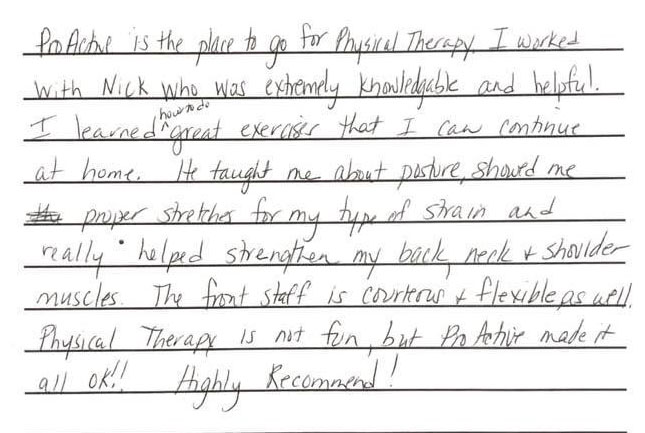 ProActive is the place to go for Physical Therapy. I worked
with Nick who was extremely knowledgable and helpful.
I learned how to do great exercises that I can continue
at home. He taught me about posture, showed me
proper stretches for my type of strain and
really helped strengthen my back, neck & shoulder
muscles. The front staff is courteous & flexible as well.
Physical Therapy is not fun, but ProActive made it
all ok!! Highly Recommend!